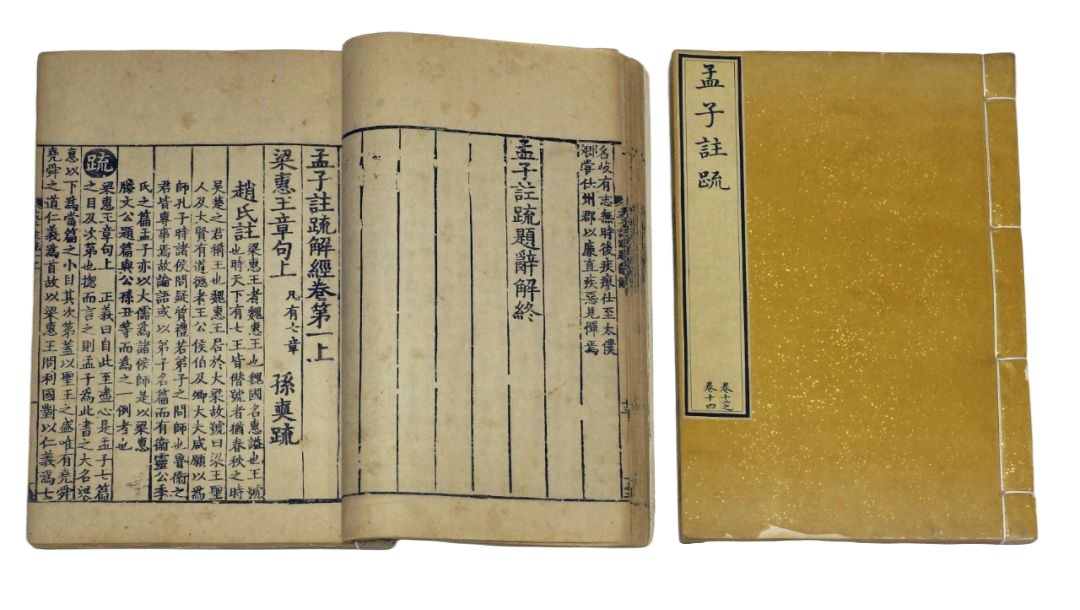 孟子註疏
卷十三之
卷十四
名岐有志無時後疾瘳仕至太僕
郡嘗仕州郡以廉直疾惡見憚焉
孟子註疏題辭解終
孟子註疏解經卷第一上
梁惠王章句上 凡有七章 孫奭疏
趙氏註 梁惠王者魏惠王也魏國名惠謚也王號
也時天下有七王皆僭號者猶春秋之時
吳楚之君稱王也魏惠王居於大梁故號曰梁王聖
人及大賢有道德者王公侯伯及卿大夫咸願以爲
師孔子時諸侯問疑質禮若弟子之問師也魯衛之
君皆專事焉故論語或以弟子名篇而有衛靈公季
氏之篇孟子亦以大儒爲諸侯師是以梁惠
滕文公題篇與公孫丑等而爲之一例者也
疏 梁惠王章句上 正義曰自此至盡心是孟子七篇
之目及次第也揔而言之則孟子爲此書之大名梁
惠以下爲當篇之小目其次第蓋以聖王之盛唯有堯舜
堯舜之道仁義爲首故以梁惠王問利國對以仁義爲七